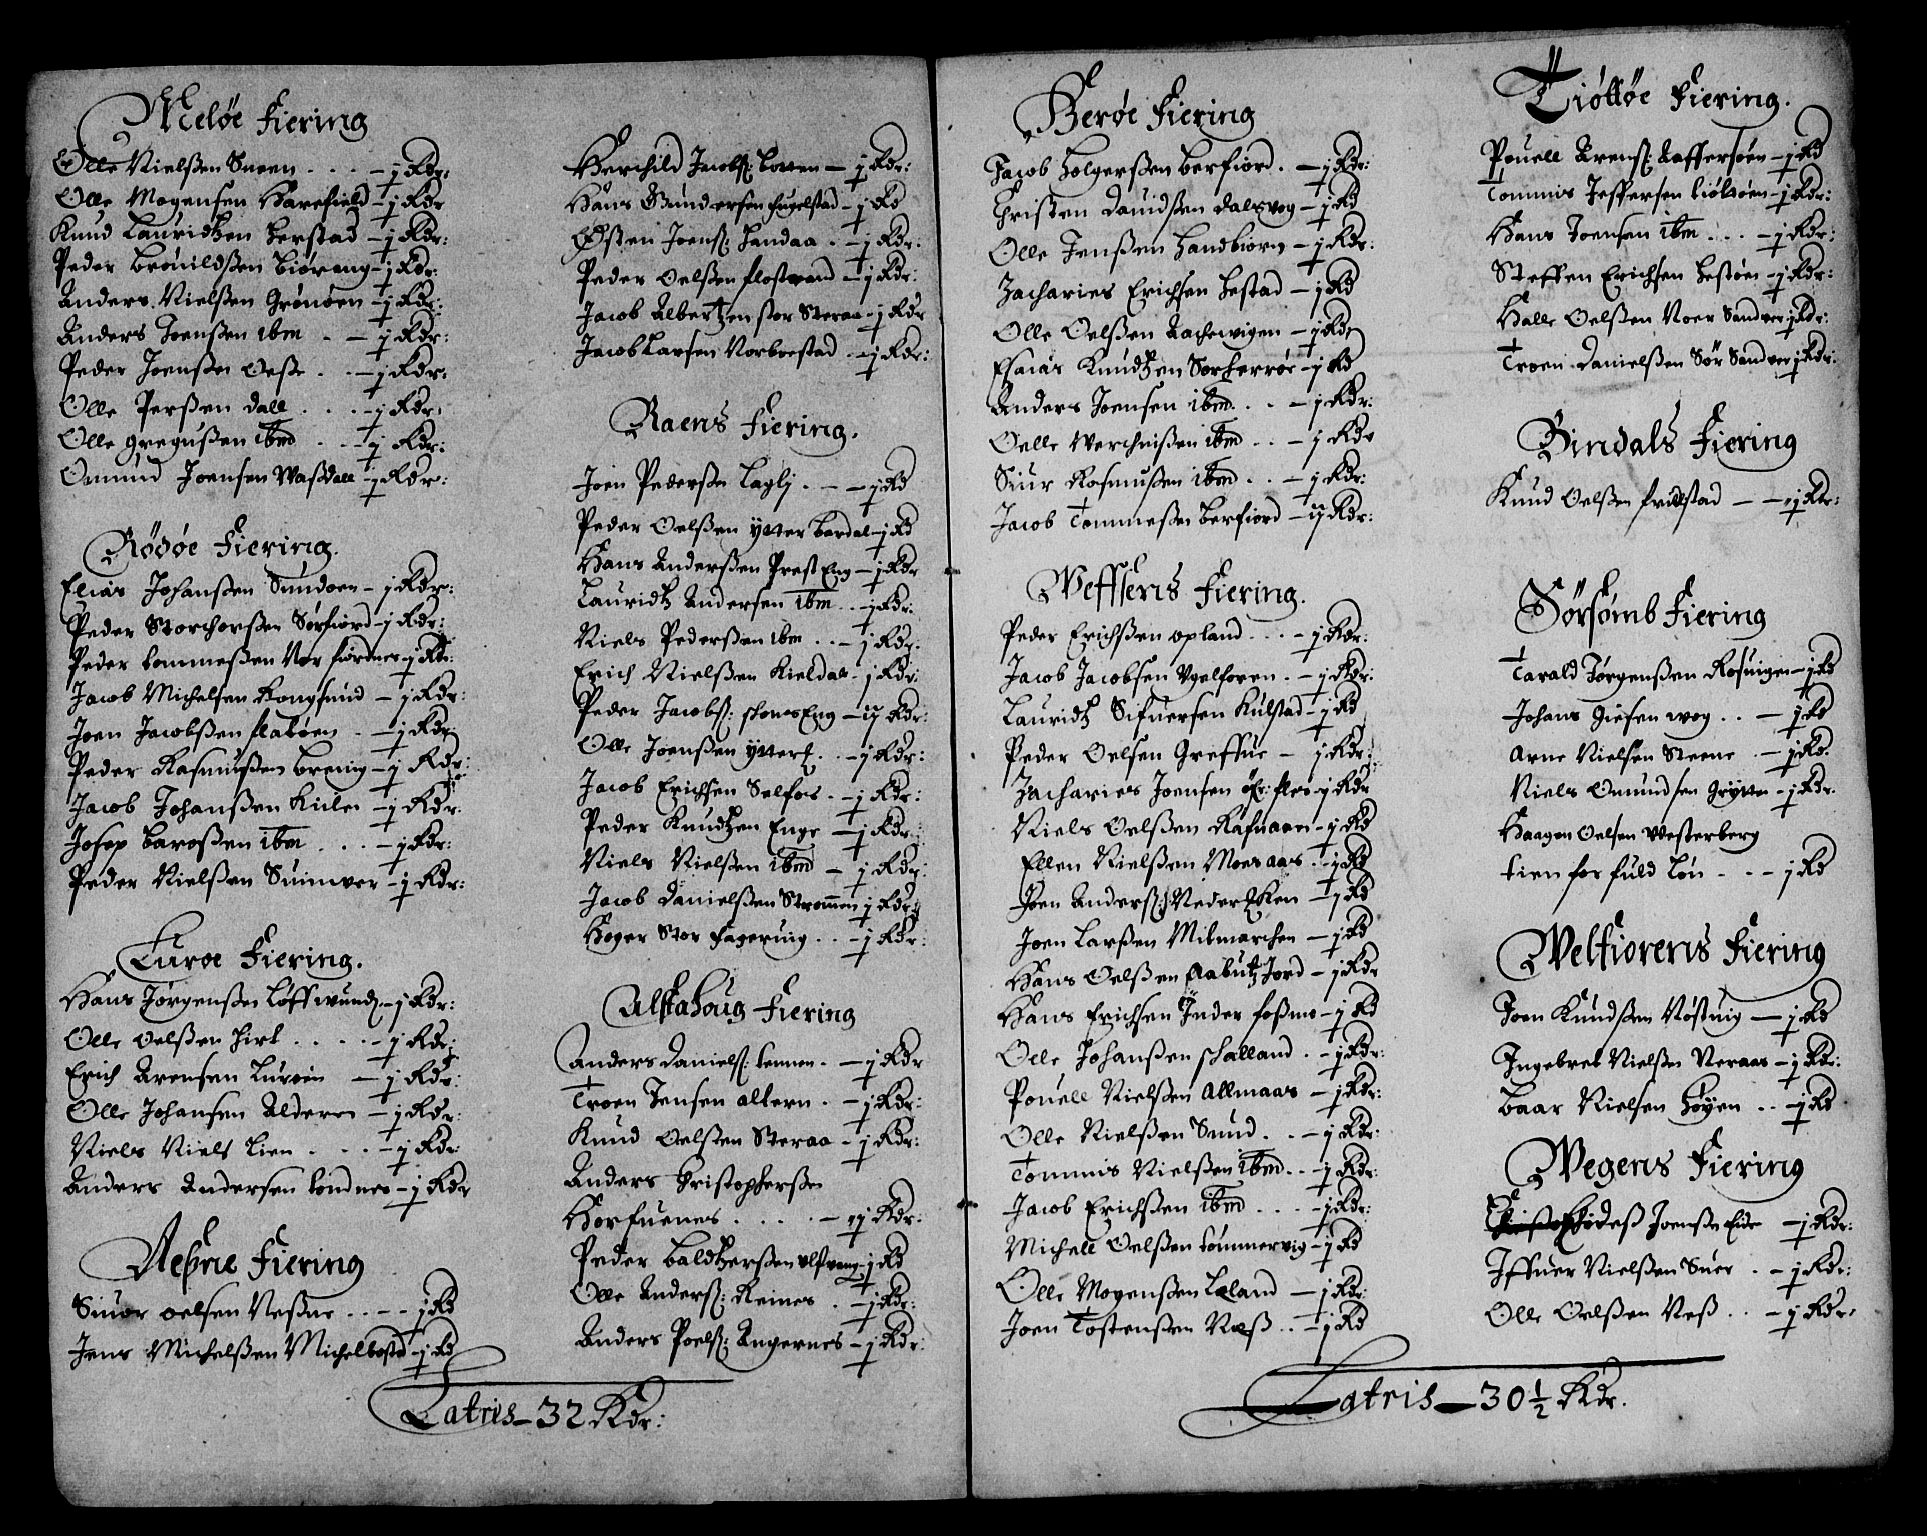 Meløe Fiering
Olle Nielßen Sneen . . . – j Rdr:
Olle Mogensen Harefield – j Rdr
Knud Lauridtzen herstad – j Rdr:
Peder bröuildßen biørang – j Rdr:
Anders Nielßen Grönöen – j Rdr:
Anders Joensen ibm . – j Rdr:
Peder Joenßen Oeße . . – j Rdr:
Olle Perßen dall . . . – j Rdr:
Olle gregußen ibm . . – j Rdr:
Omund Joensen Waßdall – j Rdr:
Rödöe Fiering.
Elias Johanßen Sundoen – j Rdr:
Peder Storchorßen Sörfiord – j Rdr:
Peder tommeßen Nor fiordnes – j Rdr:
Jacob Michelsen Rongsund – j Rdr:
Joen Jacobßen flatöen . – j Rdr
Peder Rasmußen breuig – j Rdr:
Jacob Johanßen Kilen – j Rdr:
Josep baroßen ibm . . . – j Rdr:
Peder Nielßen Suinuer – j Rdr:
Luroe Fiering.
Hans Jörgenßen Löffwund – j Rdr:
Olle Oelßen hirt . . . . – j Rdr:
Erich Arensen Luröen – j Rdr:
Olle Johansen Alderen – j Rdr:
Niels Niels Lien . . . – j Rdr:
Anders Andersen tondnes – j Rdr
Neßne Fiering
Siuor oelsen Neßne . . . – j Rd
Jens Michelßen Michelbostd – j Rd
Herchild Jacobß: botten – j Rdr:
Hans Gundersen fugelstad – j Rd
Østen Joenß: handaa . – j Rdr:
Peder Oelßen flostrand – j Rdr:
Jacob Albertzen stor Steraa – j Rdr
Jacob Larsen Norboestad – j Rdr:
Raens Fiering.
Joen Pederßen Laglj . – – j Rd
Peder Oelßen ytter bardal – j Rd
Hans Anderßen Prest Eng – j Rdr
Lauridtz Andersen ibm . . – j Rdr:
Niels Pederßen ibm . . – j Rdr.
Erich Nielßen Kieldas – j Rdr:
Peder Jacobß: schonesEng – ij Rdr:
Olle Joenßen ytter . . – j Rdr:
Jacob Erichsen Selfors . – j Rdr:
Peder Knudtzen Enge – j Rdr:
Niels Nielßen ibm – j Rdr:
Jacob Danielßen Strommen j Rdr:
Hoger Stor fageruig . . – j Rdr:
Alstahoug Fiering
Anders Danielß: tennen . – j Rdr
Troen Jensen altern . – j Rdr:
Knud Oelßen Steraa – j Rdr:
Anders Cristopherßen
Horfuenes . . . . – ij Rdr:
Peder baldtzerßen ulfvang – j Rd
Olle Andersß: Reines . – j Rdr:
Anders Poelß: Angernes – j Rdr:
Latris – 32 Rdr:
Heröe Fiering
Jacob holgerßen berfiord . – j Rdr:
Christen Dauidßen dalsvog – j Rd
Olle Jenßen Sandhiorn – j Rdr:
Zacharies Erichsen hestad – j Rd
Olle Oelßen Aachewigen – j Rdr
Esaias Knudtzen Sorherröe – j Rd
Anders Joensen ibm . . – j Rdr:
Oelle Werchnißen ibm . . – j Rdr
Siur Rasmußen ibm . . – j Rdr:
Jacob Tommeßen berfiord – ij Rdr:
Weffsens Fiering.
Peder Erichßen opland . . . – j Rdr:
Jacob Jacobsen Vgelforen . – j Rdr:
Lauridtz Sifuersen Kulstad – j Rd
Peder Oelsen Greffue – j Rdr:
Zacharies Joensen öfr: fles – j Rdr
Niels Oelßen Rafnaaen – j Rd
Ellen Nielßen Moesaas . – j Rd
Joen Anderß: Neder Ken – j Rd
Joen Larßen Milmarchen – j Rd
Hans Oelßen Aabutz Jord – j Rdr
Hans Erichsen Inder foßme – j Rd
Olle Johanßen schalland . – j Rdr:
Pouell Nielßen Allmaas – j Rdr:
Olle Nielßen Sund . . – j Rdr:
Tommis Nielßen ibm . . – j Rdr:
Jacob Erichßen ibm . . . – j Rdr:
Michell Oelßen tömmervig – j Rd
Olle Mogenßen Læland – j Rdr:
Joen Tostenßen Næß . . – j Rd
Tiöttöe Fiering.
Pouell Arenß: Aaffersöen – j Rd
Tommis Jessersen tiöltöen – j Rdr:
Hans Joensen ibm . . . – j Rdr:
Steffen Erichsen hestöen – j Rdr:
Halle Oelßen Noer Sandver – j Rdr:
Troen Danielßen Sör Sandver j Rdr:
Bindals Fiering
Knud Oelßen fridlstad – – j Rdr:
Sörsömb Fiering
Tarald Jörgenßen Rosuigen – j Rd
Johans Giesenwog . . – j Rd
Arne Nielsen Steene . – j Rd.
Niels Omundsen Grytten – j Rdr.
Haagen Oelsen Westerberg
tien for fuld lön . . – j Rd
Welfiorens Fiering
Joen Knudßen Nöstuig – j Rd
Ingebret Nielßen Neraas – j Rdr:
baar Nielsen höyen . . – j Rd
Wegens Fiering
Joenßen Eide – j Rdr:
Iffuer Nielßen Suer . – j Rdr:
Olle Oelßen Neß . . – j Rdr:
Latris – 30 1/2 Rdr.